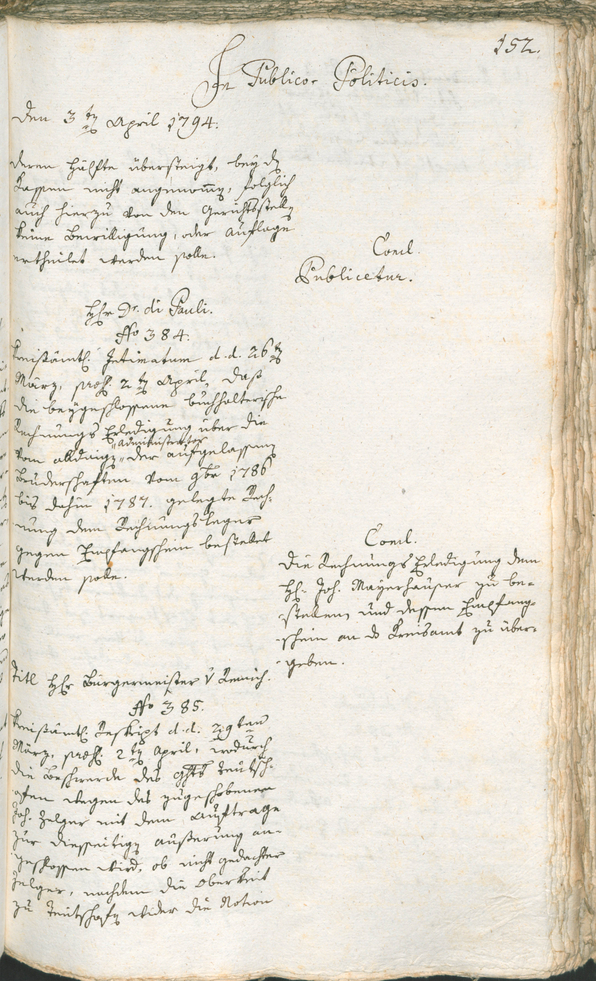 152.
In Publico-Politicis.
Den 3ten April 1794.
deren Hälfte übersteigt, bey den
Kassen nicht angenommen, folglich
auch hierzu von den Gerichtsstellen
keine Bewilligung, oder Auflage
ertheilet werden solle.
Concl.
Publicetur.
Hr. Dr. di Pauli.
No 384.
Kreisämtl. Intimatum d.d. 26ten
März, prees. 2ten April, daß
die beygeschlossene buchhalterische
Rechnungs Erledigung über die
vom abdmigen Administrator der aufgelassenen
Bruderschaften vom 9br 1786
bis dahin 1787. gelegte Rech-
nung dem Rechnungsleger
gegen Empfangschein bestellet
werden solle.
Concl.
Die Rechnungs Erledigung dem
H. Joh. Mayrhauser zu be-
stellen, und dessen Empfang-
schein an das Kreisamt zu über-
geben.
Titl Hr Bürgermeister v Remich.
No 385.
Kreisämtl. Reskript d.d. 29ten
März, prees. 2ten April, wodurch
die Beschwerde des Ghts Teutsch-
ofen wegen des zugeschobenen
Joh. Zelger mit dem Auftrage
zur diesseitigen äußerung an-
geschlossen wird, ob nicht gedachter
Zelger, nachdem die Oberkeit
zu Teutschofen wider die Notion